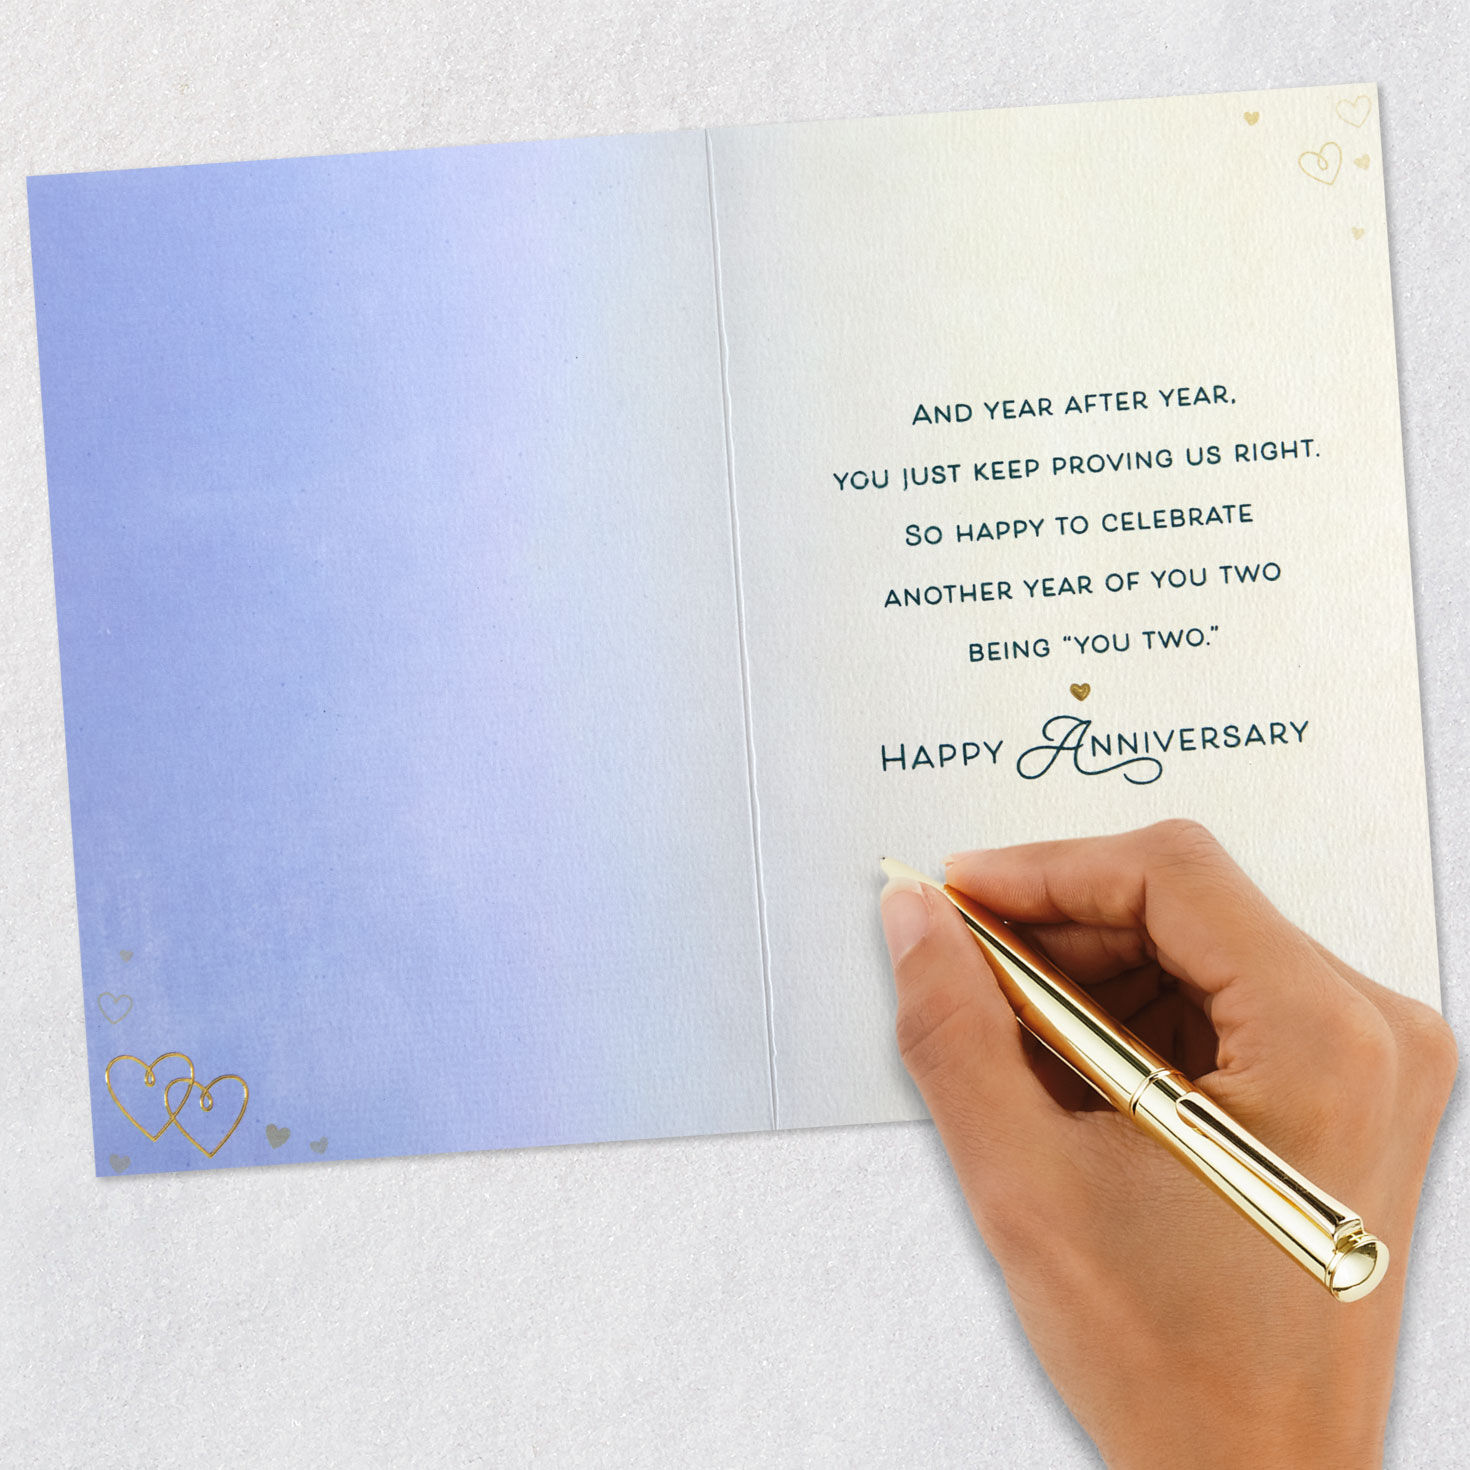 AND YEAR AFTER YEAR,
YOU JUST KEEP PROVING US RIGHT.
SO HAPPY TO CELEBRATE
ANOTHER YEAR OF YOU TWO
BEING “YOU TWO.”
HAPPY ANNIVERSARY